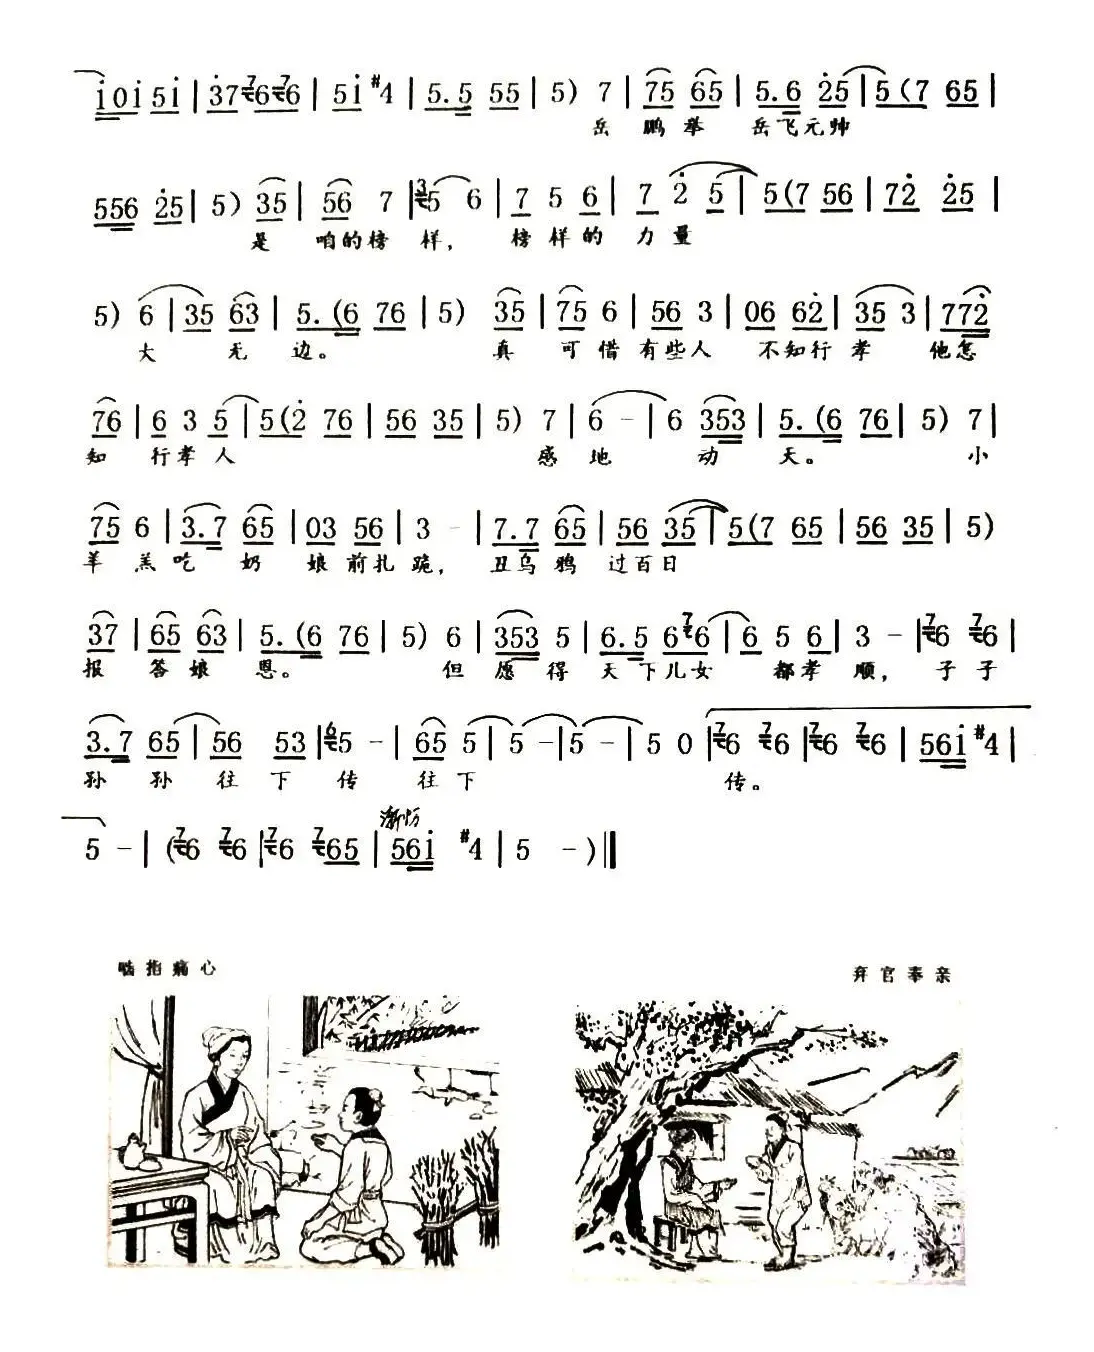 i0i 5i | 37 76 76 | 5i #4 | 5.5 55 | 5) 7 | 75 65 | 5.6 25 | 5(7 65 |
岳 鹏 举 岳飞元帅
556 25 | 5) 35 | 56 7 | 35 6 | 7 5 6 | 7 2 5 | 5(7 56 | 72 25 |
是 咱的榜 样， 榜 样 的 力 量
5) 6 | 35 63 | 5.(6 76 | 5) 35 | 75 6 | 56 3 | 06 62 | 35 3 | 772
大 无 边。 真 可 惜 有些人 不知行 孝 他怎
76 | 6 3 5 | 5(2 76 | 56 35 | 5) 7 | 6 - | 6 353 | 5.(6 76 | 5) 7 |
知 行孝 人 感 地 动 天。 小
75 6 | 3.7 65 | 03 56 | 3 - | 7.7 65 | 56 35 | 5(7 65 | 56 35 | 5)
羊 羔 吃 奶 娘 前扎 跪， 丑乌 鸦 过百日
37 | 65 63 | 5.(6 76 | 5) 6 | 353 5 | 6.5 6 76 | 6 5 6 | 3 - | 76 76 |
报 答 娘 恩。 但 愿 得 天 下儿 女 都孝 顺， 子 子
3.7 65 | 56 53 | 65 - | 65 5 | 5 - | 5 - | 5 0 | 76 76 | 76 76 | 56i #4 |
孙 孙 往 下 传 往 下 传。
5 - | (76 76 | 76 765 | 56i #4 | 5 - ) ||
渐慢
啮指痛心
弃官奉亲